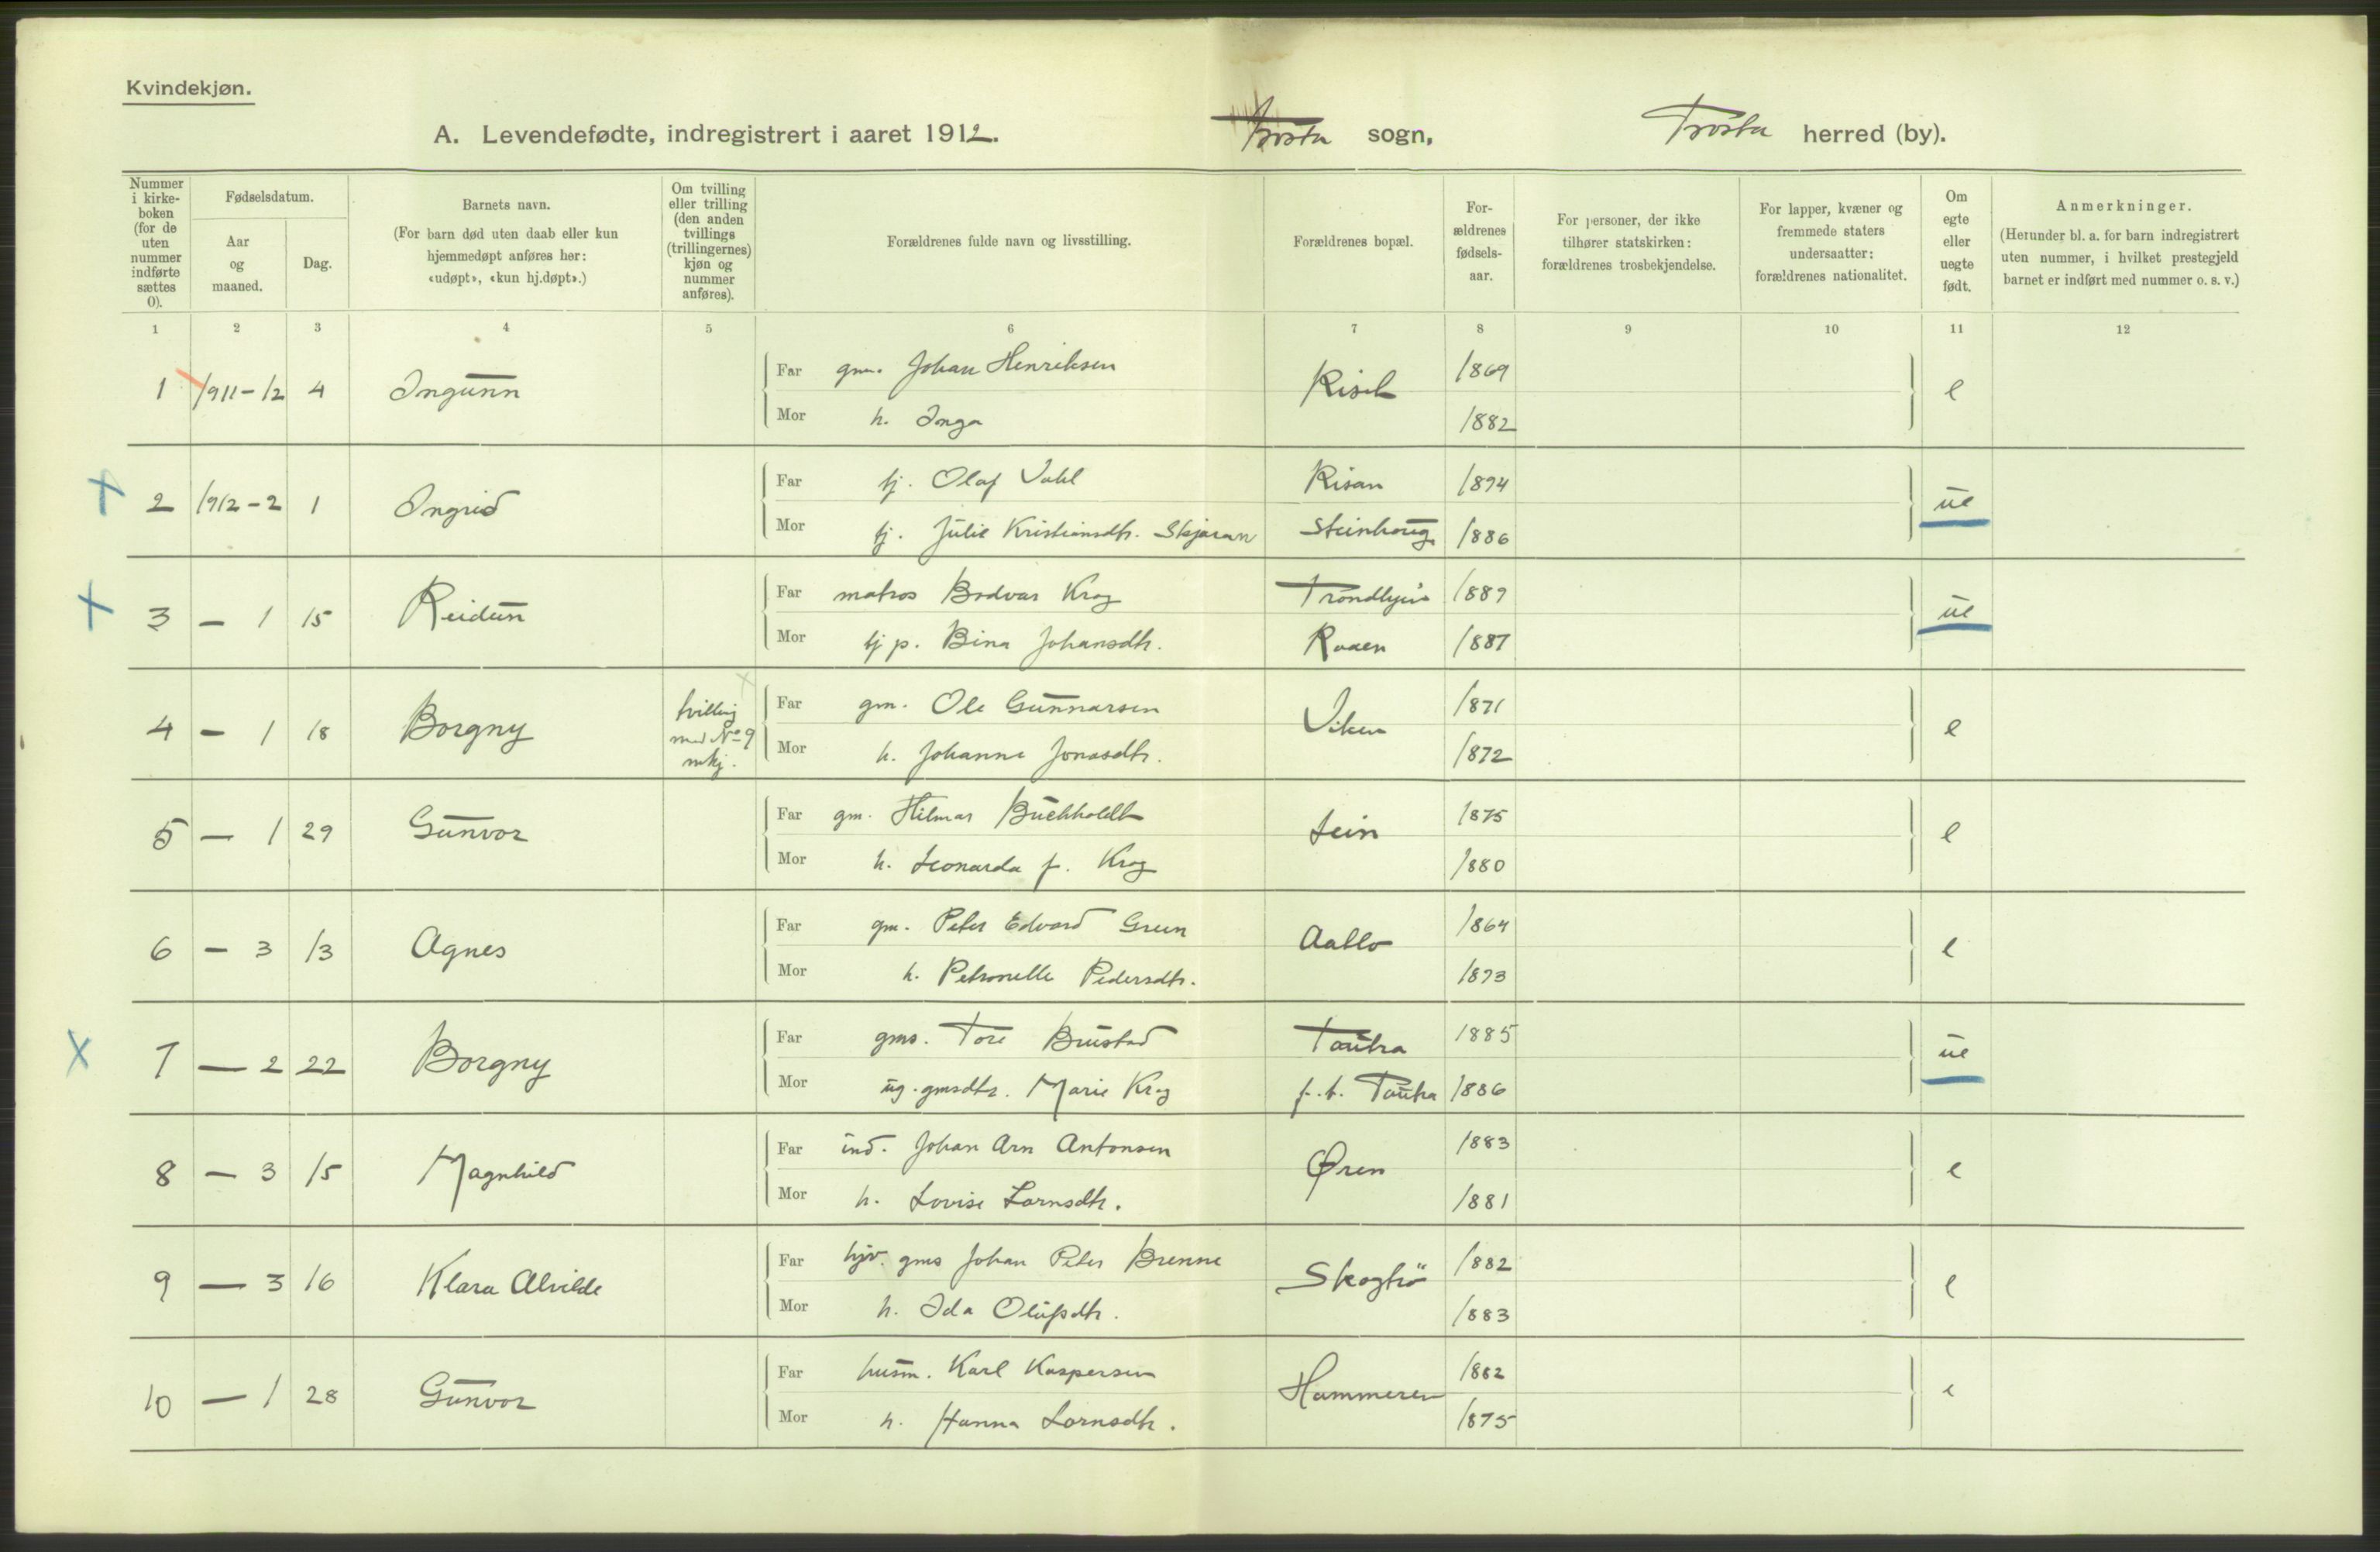 Kvindekjøn.
A. Levendefødte, indregistrert i aaret 1912. Frosta sogn, Frosta herred (by).
Nummer i kirke-boken (for de uten nummer indførte sættes 0).
Fødselsdatum.
Aar og maaned.
Dag.
Barnets navn.
(For barn død uten daab eller kun hjemmedøpt anføres her: «udøpt», «kun hj.døpt».)
Om tvilling eller trilling (den anden tvillings (trillingernes) kjøn og nummer anføres).
Forældrenes fulde navn og livsstilling.
Forældrenes bopæl.
For-ældrenes fødsels-aar.
For personer, der ikke tilhører statskirken: forældrenes trosbekjendelse.
For lapper, kvæner og fremmede staters undersaatter: forældrenes nationalitet.
Om egte eller uegte født.
Anmerkninger.
(Herunder bl. a. for barn indregistrert uten nummer, i hvilket prestegjeld barnet er indført med nummer o. s. v.)
1 2 3 4 5 6 7 8 9 10 11 12
1 1911-12 4 Ingunn Far gm. Johan Henriksen Risel 1869 e
Mor h. Inga 1882
2 1912-2 1 Ingrid Far tj. Olaf Vahl Risan 1894 ue
Mor tj. Julie Kristiansdtr. Skjæran Steinhoug 1886
3 - 1 15 Reidun Far matros Bodvar Krog Trondhjem 1889 ue
Mor tj p. Bina Johansdtr. Raaen 1887
4 - 1 18 Borgny tvilling med No 9 mkj. Far gm. Ole Gunnarsen Viken 1871 e
Mor h. Johanne Jonasdtr. 1872
5 - 1 29 Gunvor Far gm. Hilmar Buchholdt Lein 1875 e
Mor h. Leonarda f. Krog 1880
6 - 3 13 Agnes Far gm. Peter Edvard Green 1864 e
Mor h. Petronelle Pedersdtr. 1873
7 - 2 22 Borgny Far gms. Tore Brustad Tautra 1885 ue
Mor ug. gmsdtr. Marie Krog f. t. Tautra 1886
8 - 3 15 Magnhild Far ind. Johan Arn Antonsen Øren 1883 e
Mor h. Lovise Lornsdtr. 1881
9 - 3 16 Klara Alvilde Far gms Johan Peter Brenne Skogtrö 1882 e
Mor h. Ida Olufsdtr. 1883
10 - 1 28 Gunvor Far husm. Karl Kaspersen Hammeren 1882 e
Mor h. Hanna Lornsdtr. 1875